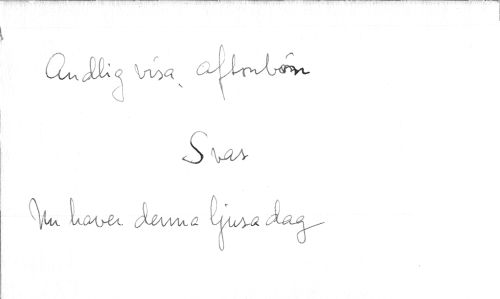 Andlig visa, aftonbön
Svar
Nu haver denna ljusa dag